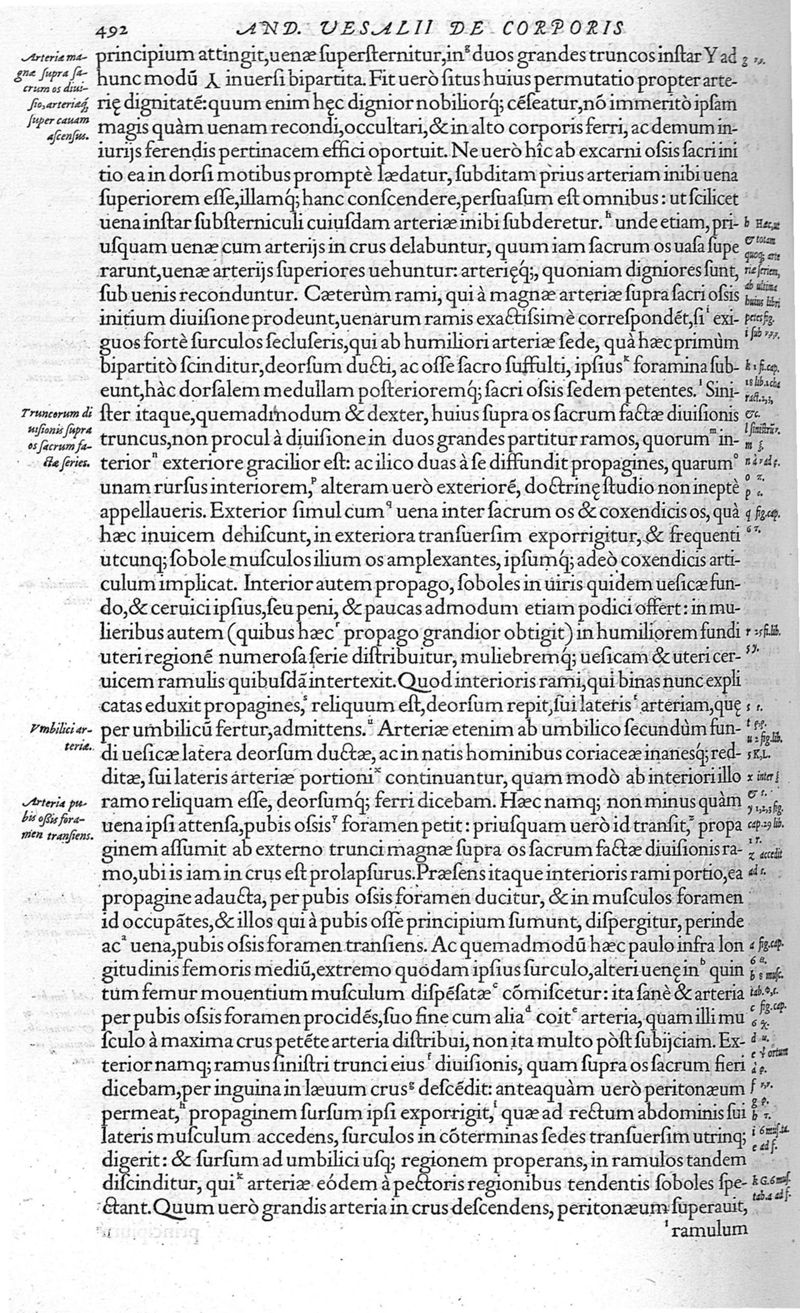 492 AND. VESALII DE CORPORIS
Arteria ma-
gnæ supra sa-
crum os diui-
sio, arteriæq́;
super cauam
ascensus.
principium attingit, uenæ supersternitur, in g duos grandes truncos instar Y ad
hunc modū ⅄ inuersi bipartita. Fit uerò situs huius permutatio propter arte-
rię dignitatē: quum enim hęc dignior nobiliorq́; cēseatur, nō immeritò ipsam
magis quàm uenam recondi, occultari, & in alto corporis ferri, ac demum in-
iurijs ferendis pertinacem effici oportuit. Ne uerò hîc ab excarni oſsis sacri ini
tio ea in dorsi motibus promptè lædatur, subditam prius arteriam inibi uena
superiorem esse, illamq́; hanc conscendere, persuasum est omnibus: ut scilicet
uena instar substerniculi cuiusdam arteriæ inibi subderetur. h unde etiam, pri-
usquam uenæ cum arterijs in crus delabuntur, quum iam sacrum os uasa supe
rarunt, uenæ arterijs superiores uehuntur: arterięq́;, quoniam digniores sunt,
sub uenis reconduntur. Cæterùm rami, qui à magnæ arteriæ supra sacri oſsis
initium diuisione prodeunt, uenarum ramis exactiſsimè correspondēt, si i exi-
guos fortè surculos secluseris, qui ab humiliori arteriæ sede, quà hæc primùm
bipartitò scinditur, deorsum ducti, ac osse sacro suffulti, ipsius k foramina sub-
eunt, hàc dorsalem medullam posterioremq́; sacri oſsis sedem petentes. l Sini-
Truncorum di
uisionis supra
os sacrum fa-
ctæ series.
ster itaque, quemadmodum & dexter, huius supra os sacrum factæ diuisionis
truncus, non procul à diuisione in duos grandes partitur ramos, quorum m in-
terior n exteriore gracilior est: ac ilico duas à se diffundit propagines, quarum o
unam rursus interiorem, p alteram uerò exteriorē, doctrinę studio non ineptè
appellaueris. Exterior simul cum q uena inter sacrum os & coxendicis os, quà
hæc inuicem dehiscunt, in exteriora transuersim exporrigitur, & frequenti
utcunq; sobole musculos ilium os amplexantes, ipsumq́; adeò coxendicis arti-
culum implicat. Interior autem propago, soboles in uiris quidem uesicæ fun-
do, & ceruici ipsius, seu peni, & paucas admodum etiam podici offert: in mu-
lieribus autem (quibus hæc r propago grandior obtigit) in humiliorem fundi
uteri regionē numerosa serie distribuitur, muliebremq́; uesicam & uteri cer-
uicem ramulis quibusdā intertexit. Quod interioris rami, qui binas nunc expli
catas eduxit propagines, s reliquum est, deorsum repit, sui lateris t arteriam, quę
Vmbilici ar-
teria.
per umbilicū fertur, admittens. u Arteriæ etenim ab umbilico secundùm fun-
di uesicæ latera deorsum ductæ, ac in natis hominibus coriaceæ inanesq́; red-
ditæ, sui lateris arteriæ portioni x continuantur, quam modò ab interiori illo
Arteria pu-
bis oſsis fora-
men transiens.
ramo reliquam esse, deorsumq́; ferri dicebam. Hæc namq; non minus quàm
uena ipsi attensa, pubis oſsis y foramen petit: priusquam uerò id transit, z propa
ginem assumit ab externo trunci magnæ supra os sacrum factæ diuisionis ra-
mo, ubi is iam in crus est prolapsurus. Præsens itaque interioris rami portio, ea
propagine adaucta, per pubis oſsis foramen ducitur, & in musculos foramen
id occupātes, & illos qui à pubis osse principium sumunt, dispergitur, perinde
ac a uena, pubis oſsis foramen transiens. Ac quemadmodū hæc paulo infra lon
gitudinis femoris mediū, extremo quodam ipsius surculo, alteri uenę in b quin
tum femur mouentium musculum dispēsatæ c cōmiscetur: ita sanè & arteria
per pubis oſsis foramen procidēs, suo fine cum alia d coit e arteria, quam illi mu
sculo à maxima crus petēte arteria distribui, non ita multo pòst subijciam. Ex-
terior namq; ramus sinistri trunci eius f diuisionis, quam supra os sacrum fieri
dicebam, per inguina in læuum crus g descēdit: anteaquàm uerò peritonæum
permeat, h propaginem sursum ipsi exporrigit, i quæ ad rectum abdominis sui
lateris musculum accedens, surculos in cōterminas sedes transuersim utrinq;
digerit: & sursum ad umbilici usq; regionem properans, in ramulos tandem
discinditur, qui k arteriæ eōdem à pectoris regionibus tendentis soboles spe-
ctant. Quum uerò grandis arteria in crus descendens, peritonæum superauit,
l ramulum